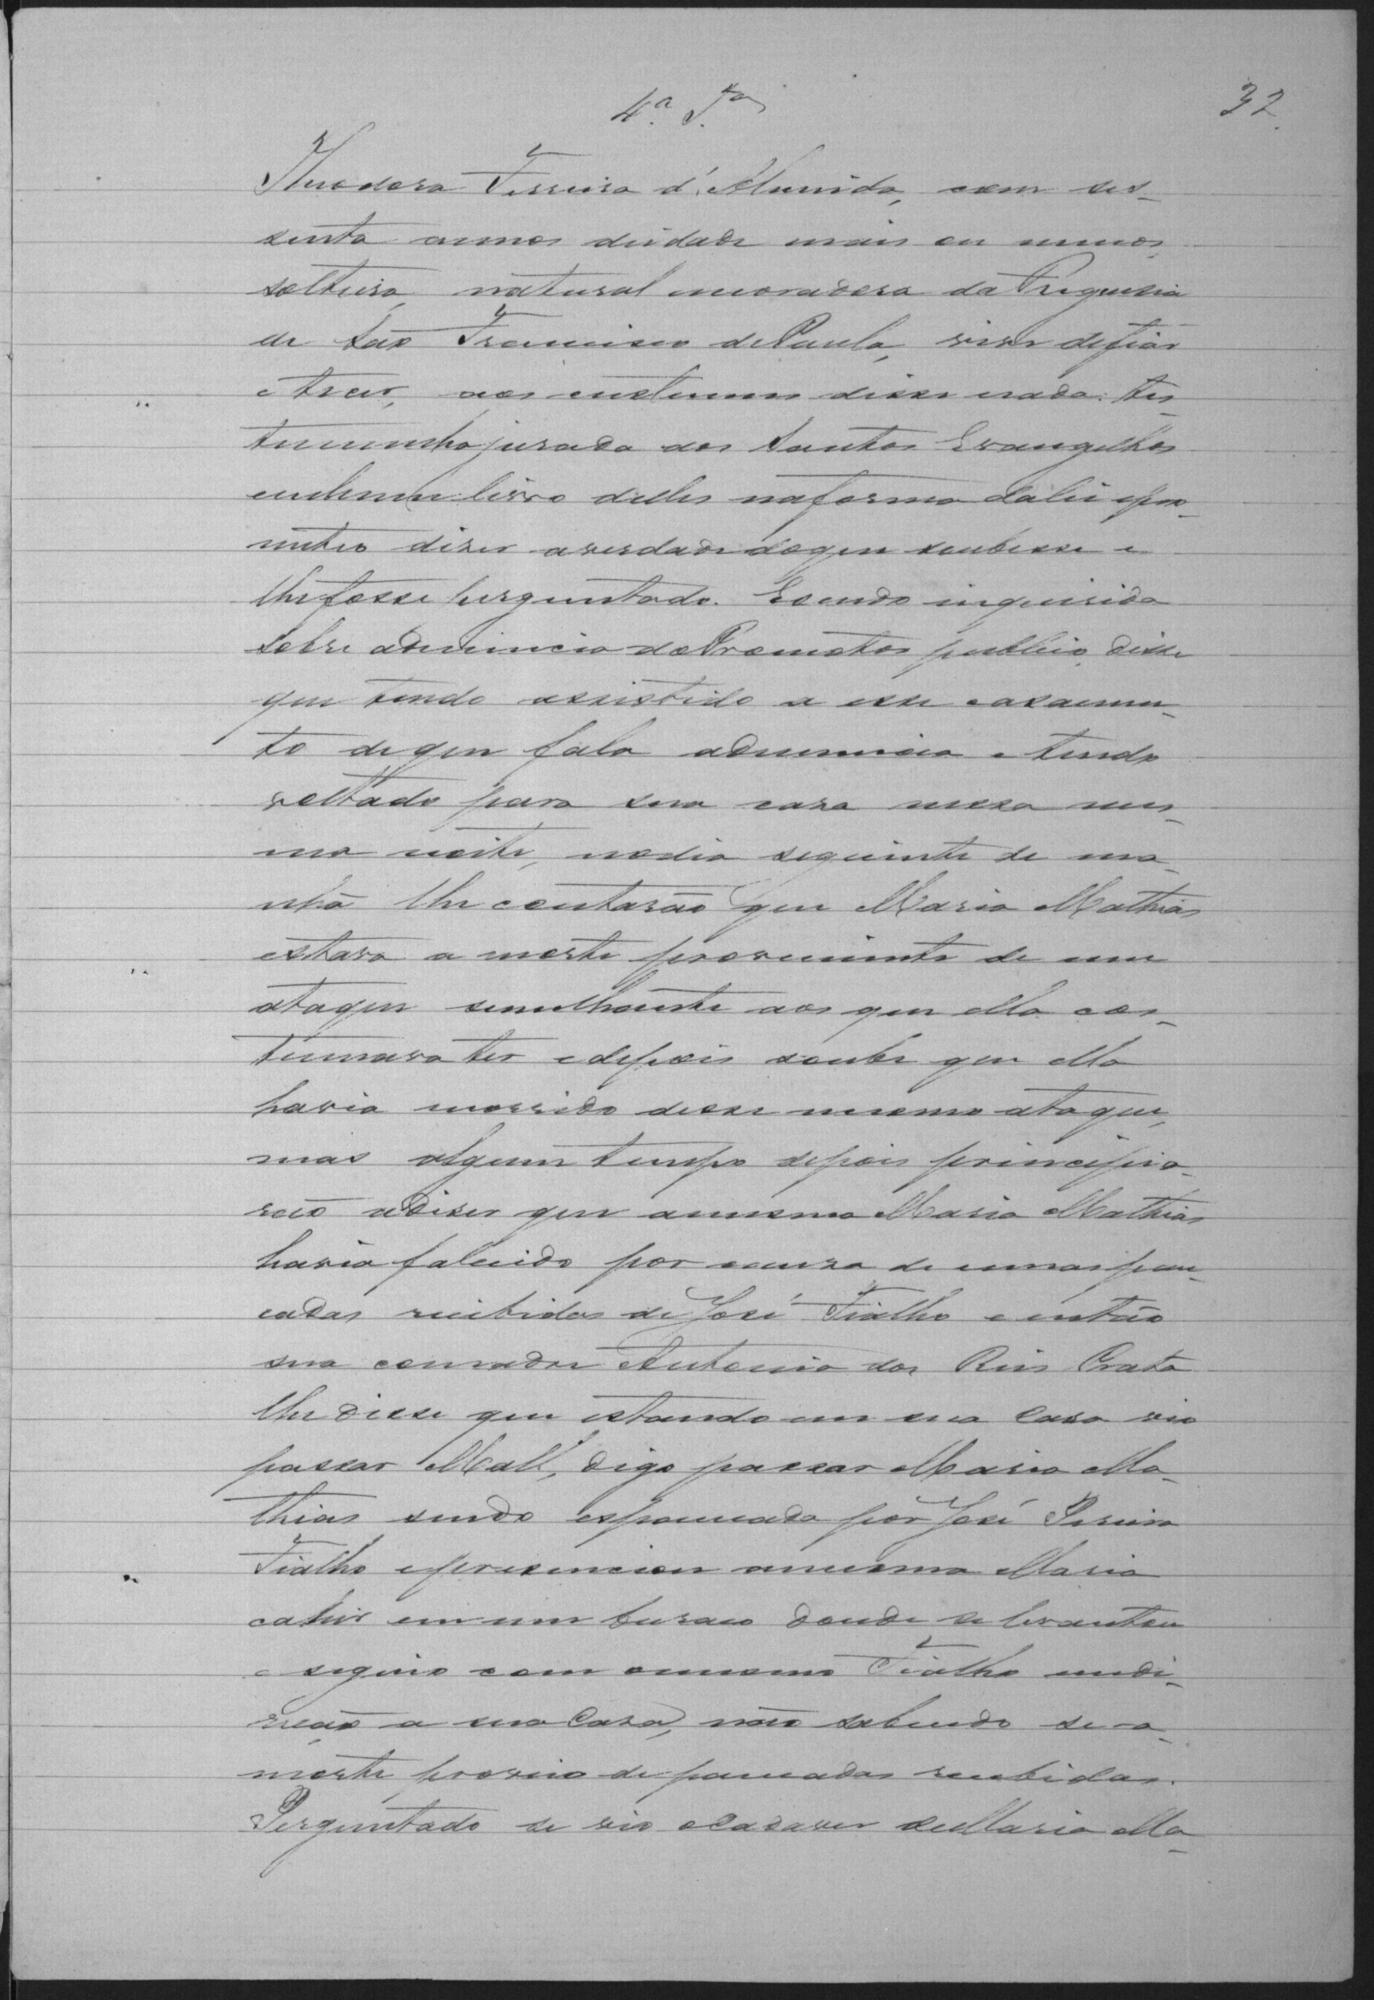 32
4.ª T.ª
Theodora Ferreira d'Almeida, com ses-
senta annos deidade mais ou menos,
solteira, natural moradora da Freguesia
de São Francisco de Paula, vive defiar
e tecer, aos custumes disse nada: tes-
temunha jurada aos Santos Evangelhos
emhum livro delles naforma dalei epro-
metteo diser averdade doque soubesse e
lhefosse perguntado. Esendo inquirida
sobre adenuncia doPromotor publico, disse
que tendo assistido a esse casamen-
to de que fala adenuncia e tendo
voltado para sua casa nessa mes-
ma noite, nodia seguinte de ma-
nhã lhe contarão que Maria Mathias
estava a morte proveniente de um
ataque semelhante aos que ella cos-
tumava ter edepois soube que ella
havia morrido desse mesmo ataque,
mas algum tempo depois principia-
rão adiser que amesma Maria Mathias
havia falecido por causa de umas pan-
cadas recibidas de José Fialho e então
sua comadre Antonia dos Reis Prata
lhe disse que estando em sua casa vio
passar Math, digo passar Maria Ma-
thias sendo espancada por José Pereira
Fialho epresenciou amesma Maria
cahir em um buraco donde se levantou
e seguio com omesmo Fialho emdi-
recção a sua Casa, não sabendo se a
morte proveio de pancadas recebidas.
Perguntado se vio oCadaver deMaria Ma-